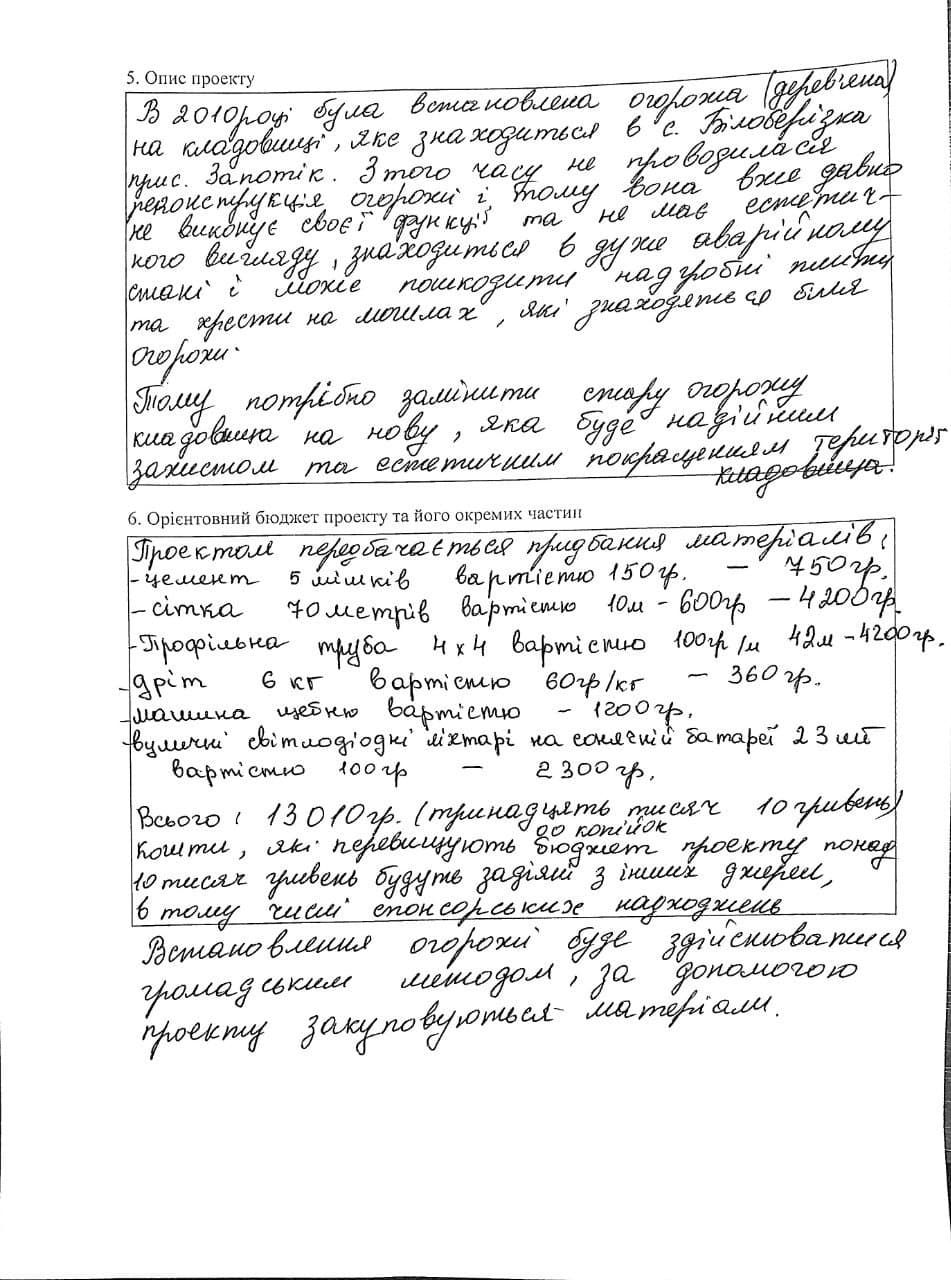 5. Опис проекту
В 2010році була встановлена огорожа (дерев'яна)
на кладовищі, яке знаходиться в с. Білоберізка
прис. Запотік. З того часу не проводилася
реконструкція огорожі і тому вона вже давно
не виконує своєї функції та не має естетич-
ного вигляду, знаходиться в дуже аварійному
стані і може пошкодити надгробні плити
та хрести на могилах, які знаходяться біля
огорожи.
Тому потрібно замінити стару огорожу
кладовища на нову, яка буде надійним
захистом та естетичним покращенням території
кладовища.
6. Орієнтовний бюджет проекту та його окремих частин
Проектом передбачається придбання матеріалів:
- цемент 5 мішків вартістю 150гр. - 750гр.
- сітка 70 метрів вартістю 10м - 600гр - 4200гр.
- Профільна труба 4х4 вартістю 100гр/м 42м - 4200гр.
- дріт 6 кг вартістю 60гр/кг - 360гр.
- машина щебню вартістю - 1200гр.
- вуличні світлодіодні ліхтарі на сонячній батареї 23 шт
вартістю 100гр - 2300гр.
Всього: 13010гр. (тринадцять тисяч 10 гривень)
00 копійок
Кошти, які перевищують бюджет проекту понад
10 тисяч гривень будуть задіяні з інших джерел,
в тому числі спонсорських надходжень
Встановлення огорожі буде здійснюватися
громадським методом, за допомогою
проекту закуповуються матеріали.